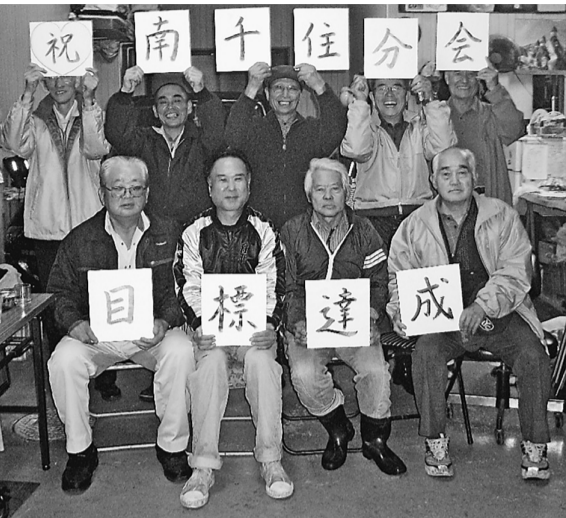 祝南千住分会
目標達成